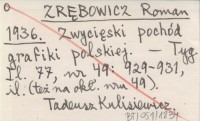 ZRĘBOWICZ Roman
1936. Zwycięski pochód
grafiki polskiej. — Tyg.
Il. 77, nr 49: 929-931,
il. (też na okł. nru 49).
Tadeusz Kulisiewicz.
BT/059/1834